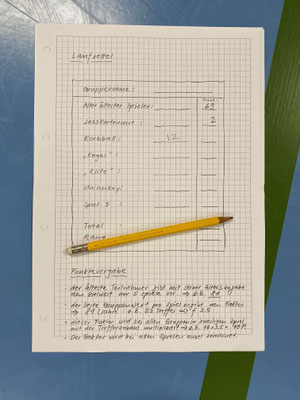 Laufzettel
Gruppenname:
Alter ältester Spieler: 63
Jasskartenwert: 2
Korbball: 12
"Kegel":
"Kiste":
Unihockey:
Spiel 5:
Total
Rang
Punktevergabe
der älteste Teilnehmer löst mit seiner Altersangabe
den der 5 Spiele z.B. 81
der beste Gruppenwert pro Spiel ergibt den Faktor
81 (Jahr) : z.B. 23 Treffer => f 3.5
dieser Faktor wird bei allen Gruppen im jeweiligen Spiel
mit der Trefferangabe multipliziert => z.B. 14 x 3.5 = 49 P.
Der Faktor wird bei allen Spielen einzeln berechnet.